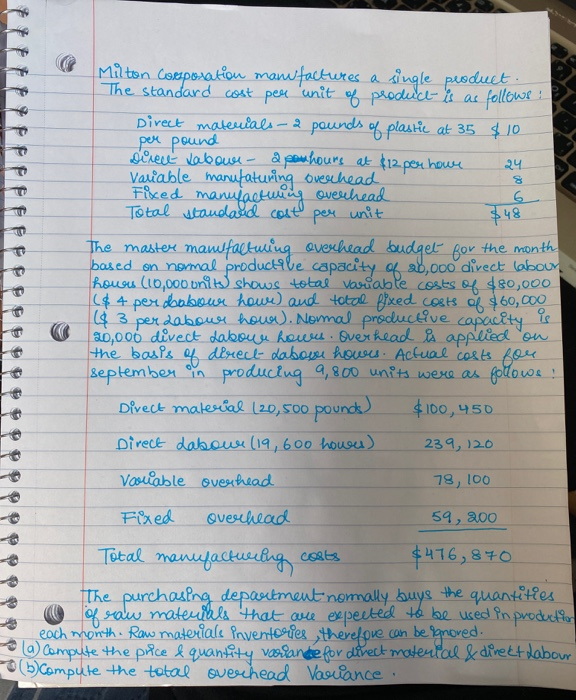 Milton Corporation manufactures a single product.
The standard cost per unit of product is as follows:
Direct materials - 2 pounds of plastic at 35 $ 10
per pound
Direct labour - 2 hours at $12 per hour 24
Variable manufaturing overhead 8
Fixed manufactuing overhead 6
Total standard cost per unit $48
The master manufactuing overhead budget for the month
based on normal productive capacity of 20,000 direct labour
hours (10,000 units) shows total variable costs of $80,000
($ 4 per labour hour) and total fixed costs of $60,000
($ 3 per labour hour). Normal productive capacity is
20,000 direct labour hours. Overhead is applied on
the basis of direct labour hours. Actual costs for
september in producing 9,800 units were as follows:
Direct material (20,500 pounds) $100,450
Direct labour (19,600 hours) 239,120
Variable overhead 78,100
Fixed overhead 59,200
Total manufacturing costs $476,870
The purchasing department normally buys the quantities
of raw materials that are expected to be used in production
each month. Raw materials inventories, therefore can be ignored.
(a) Compute the price & quantity variance for direct material & direct labour
(b) Compute the total overhead Variance.